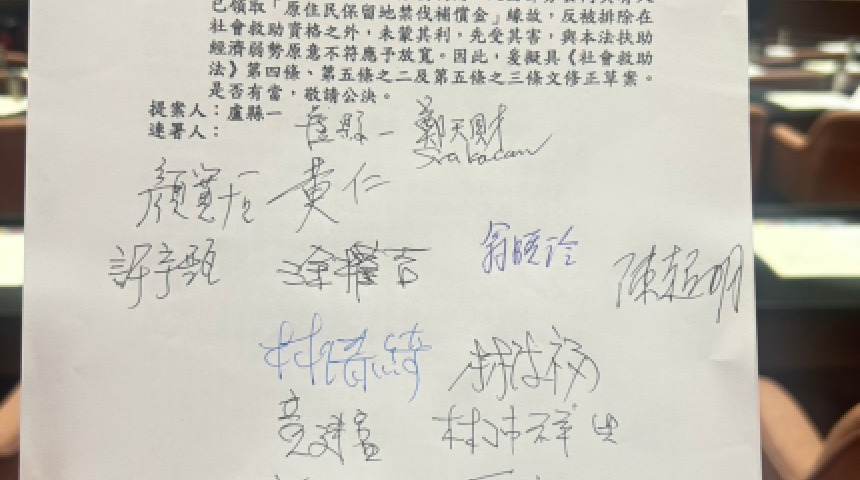 已領取「原住民保留地禁伐補償金」緣故，反被排除在
社會救助資格之外，未蒙其利，先受其害，與本法扶助
經濟弱勢原意不符應予放寬。因此，爰擬具《社會救助
法》第四條、第五條之二及第五條之三條文修正草案。
是否有當，敬請公決。
提案人：盧縣一 盧縣一 鄭天財
連署人： Sra Kacaw
顏寬恒 黃仁
許宇甄 涂權吉 翁曉玲 陳超明
林倩綺 林德福
黃建賓 林沛祥